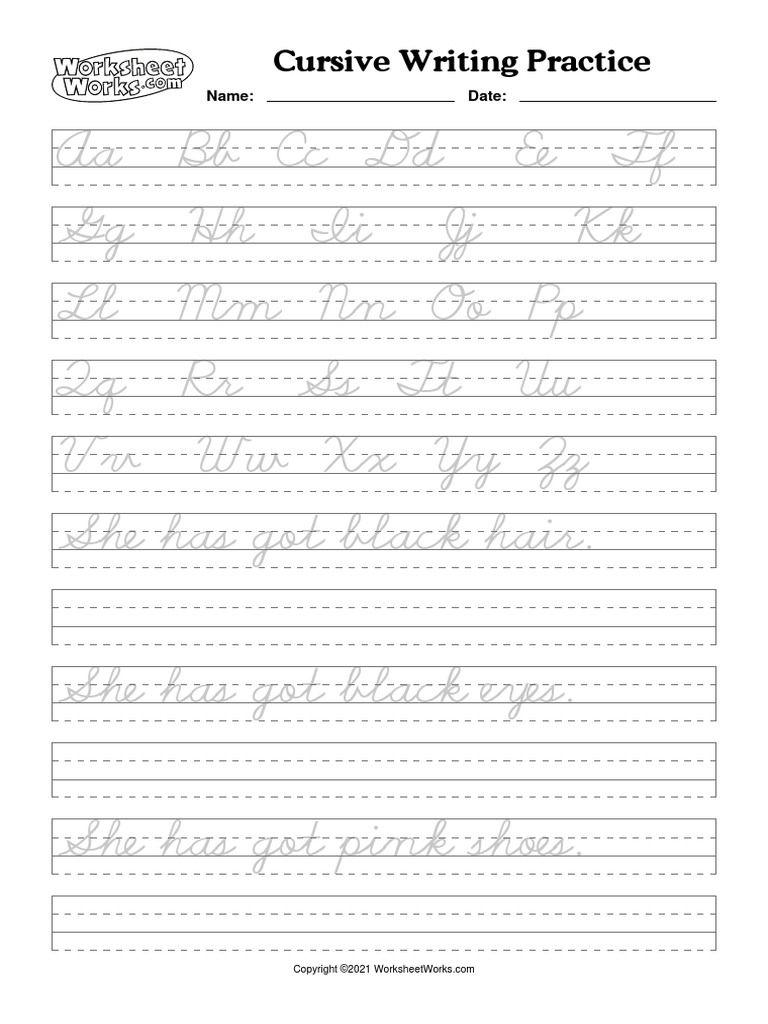 Worksheet
Works.com
Cursive Writing Practice
Name: Date:
Aa Bb Cc Dd Ee Ff
Gg Hh Ii Jj Kk
Ll Mm Nn Oo Pp
Qq Rr Ss Tt Uu
Vv Ww Xx Yy Zz
She has got black hair.
She has got black eyes.
She has got pink shoes.
Copyright ©2021 WorksheetWorks.com